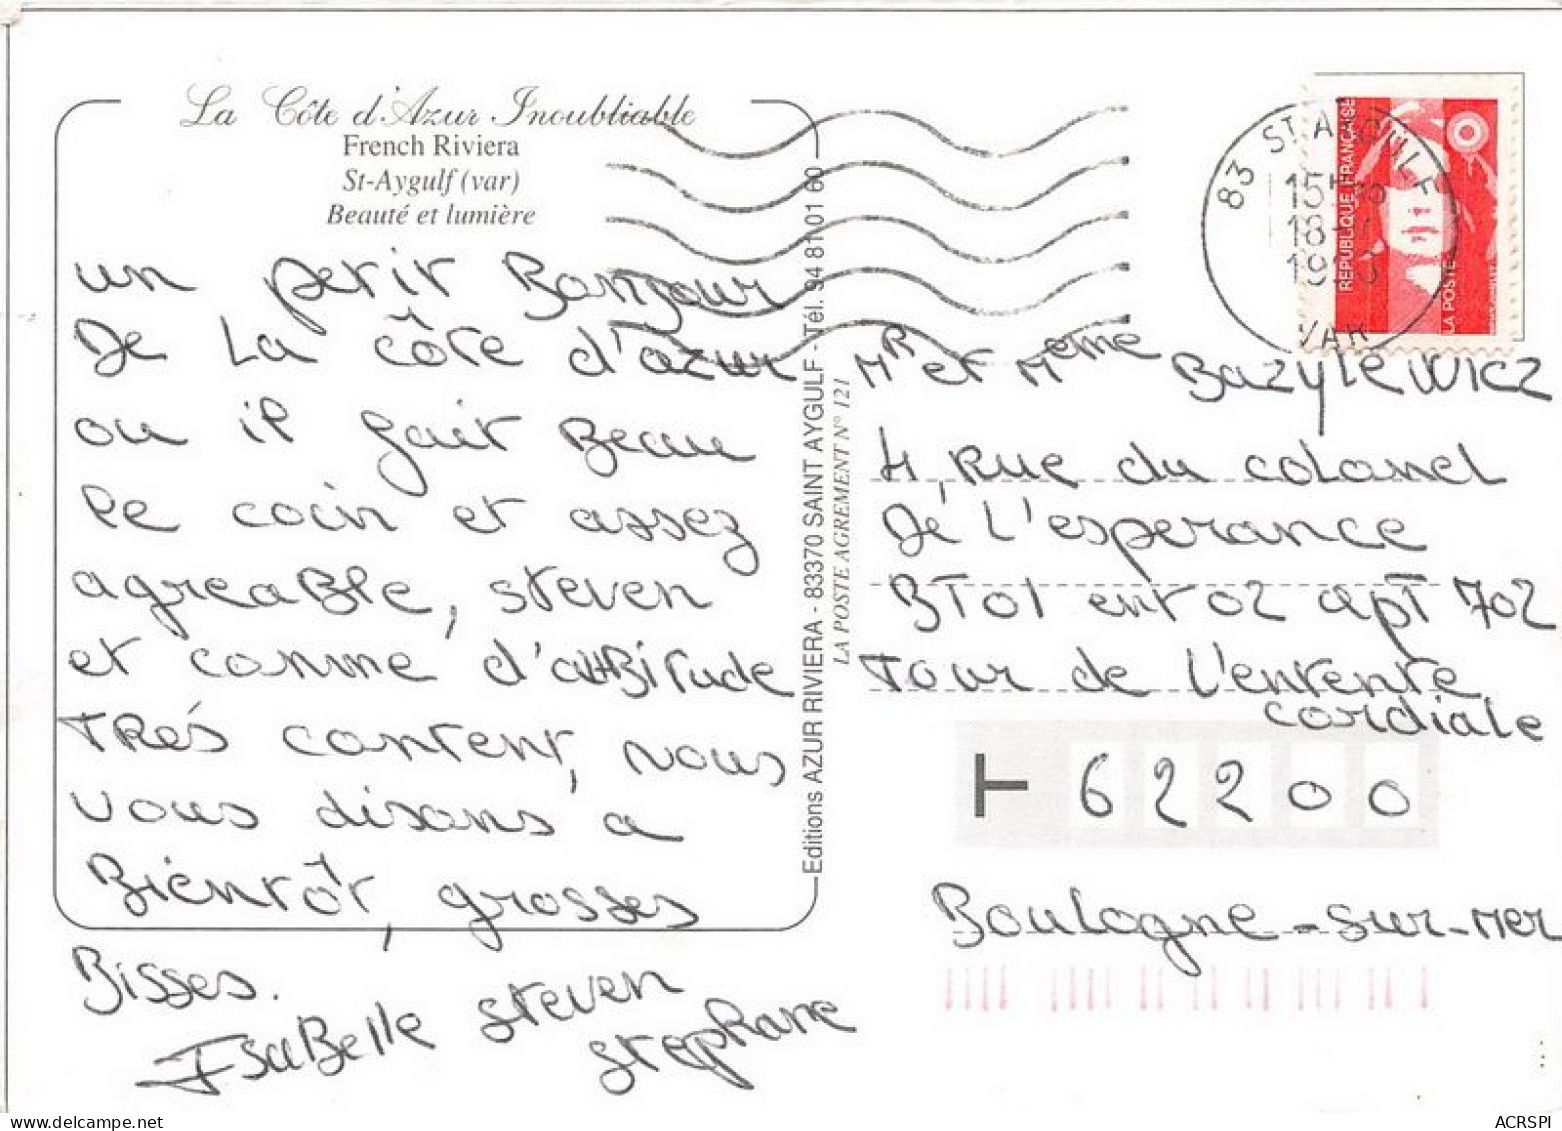 La Côte d'Azur Inoubliable
French Riviera
St-Aygulf (var)
Beauté et lumière
un petit Bonjour
De La côte d'azur
ou il fait Beau
le coin et assez
agreaBle, steven
et comme d'attBitude
TRés content, nous
vous disons a
Biéntôt, grosses
Bisses.
IsaBelle steven
stephane
Editions AZUR RIVIERA - 83370 SAINT AYGULF - Tél. 94 81 01 60
LA POSTE AGREMENT N° 121
83 ST AYGULF
15H
18-
19
VAR
REPUBLIQUE FRANÇAISE
LA POSTE
MR et Meme Bazylewicz
4, Rue du colonel
De L'esperance
BT01 ent 02 apt 702
Tour de L'entente
cordiale
T 62200
Boulogne-sur-Mer
ACRSPI